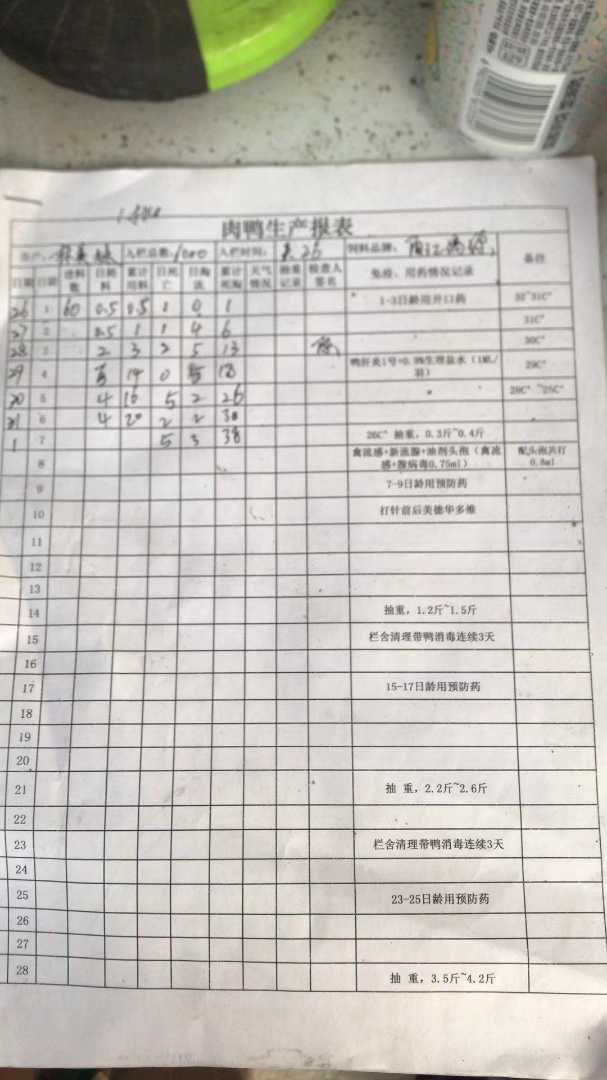 肉鸭生产报表
客户: 入栏总数: 1000 入栏时间: 26 饲料品牌: 备注
日期 日龄 进料数 日耗料 累计用料 日死亡 日淘汰 累计死淘 天气情况 抽重记录 检查人签名 免疫、用药情况记录
26 1 60 0.5 0.5 1 0 1 1-3日龄用开口药 32~31C°
27 2 0.5 1 1 4 6 31C°
28 3 2 3 2 5 13 30C°
29 4 14 0 5 18 鸭肝炎1号+0.9%生理盐水（1ML/羽） 29C°
30 5 4 16 5 2 26 28C° ~25C°
31 6 4 20 2 2 30
1 7 5 3 38 26C° 抽重，0.3斤~0.4斤
8 禽流感+新流腺+油剂头孢（禽流感+腺病毒0.75ml） 配头孢共打0.8ml
9 7-9日龄用预防药
10 打针前后美德华多维
11
12
13
14 抽重，1.2斤~1.5斤
15 栏舍清理带鸭消毒连续3天
16
17 15-17日龄用预防药
18
19
20
21 抽 重，2.2斤~2.6斤
22
23 栏舍清理带鸭消毒连续3天
24
25 23-25日龄用预防药
26
27
28 抽 重，3.5斤~4.2斤